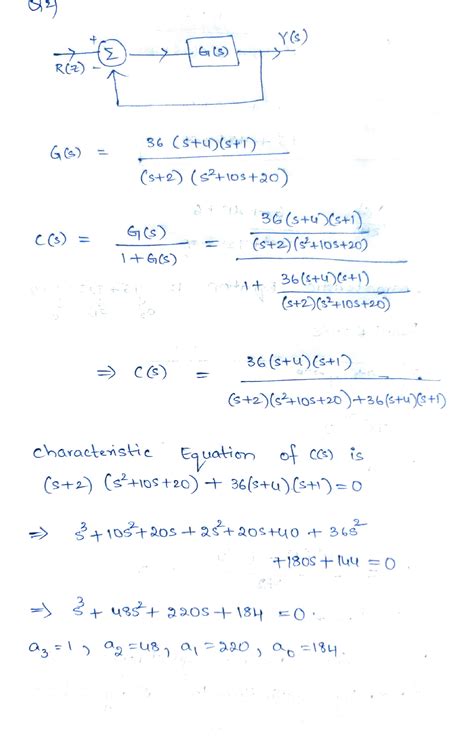 Q2)
+ Y(s)
Σ G(s)
R(z) -
G(s) = 36 (s+4)(s+1) / (s+2) (s²+10s+20)
C(s) = G(s) / 1+G(s) = 36(s+4)(s+1) / (s+2)(s²+10s+20) / 1+ 36(s+4)(s+1) / (s+2)(s²+10s+20)
⇒ C(s) = 36(s+4)(s+1) / (s+2)(s²+10s+20)+36(s+4)(s+1)
characteristic Equation of C(s) is
(s+2) (s²+10s+20) + 36(s+4)(s+1)=0
⇒ s³+10s²+20s+2s²+20s+40 + 36s²
+180s+144=0
⇒ s³+48s²+220s+184=0.
a₃=1, a₂=48, a₁=220, a₀=184.